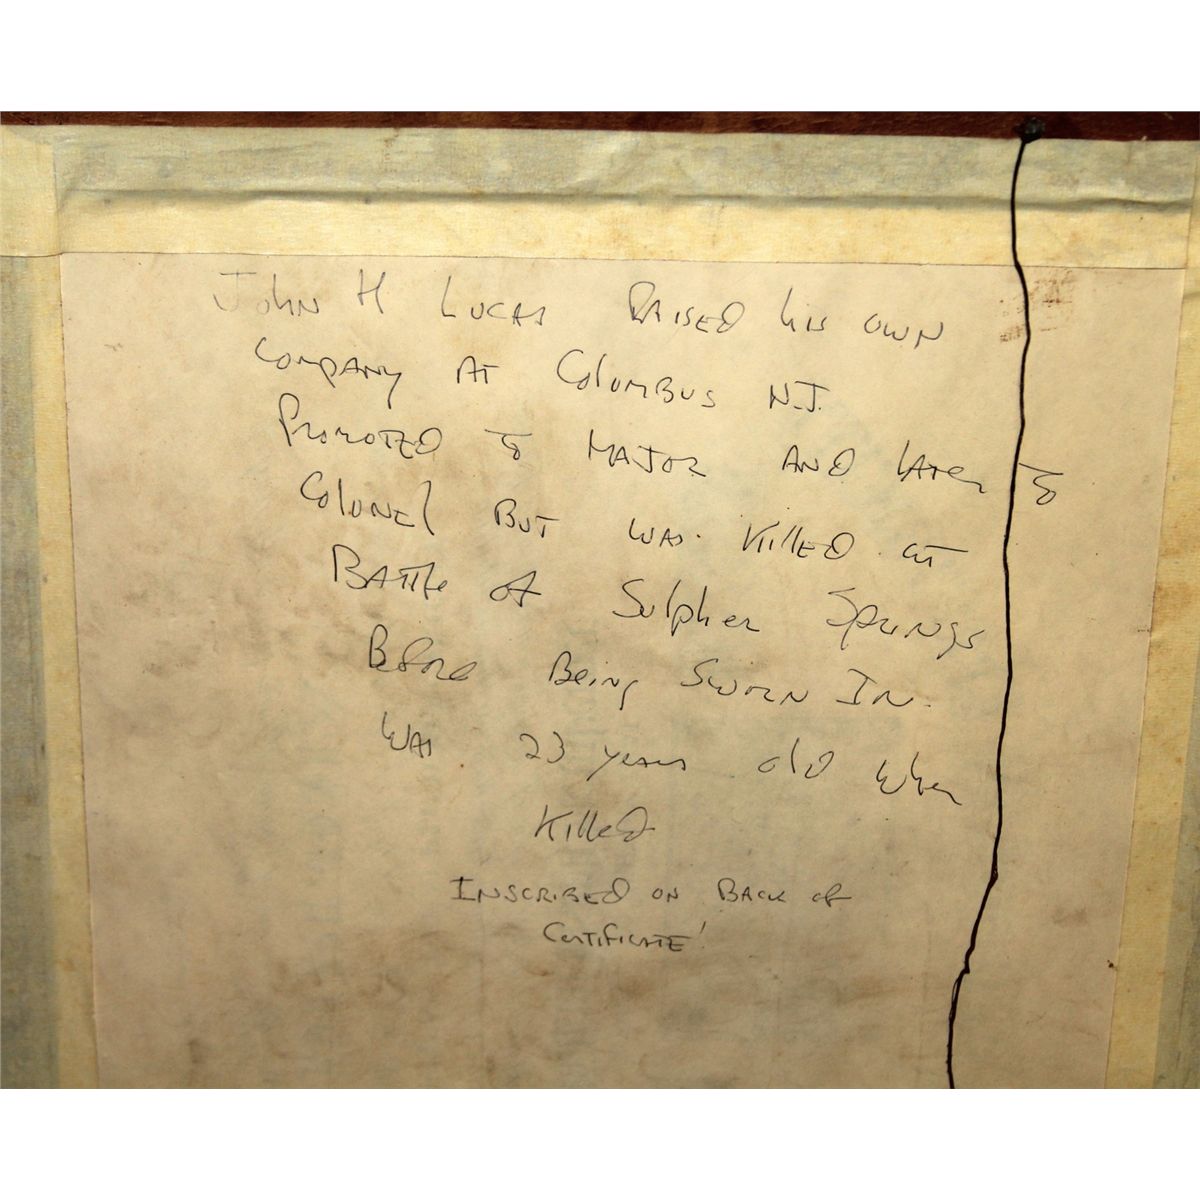 John H Lucas Raised his own
Company At Columbus N.J.
Promoted to Major And later to
Colonel But was Killed at
Battle of Sulpher Springs
Before Being Sworn In.
Was 23 years old when
Killed
Inscribed on Back of
Certificate!